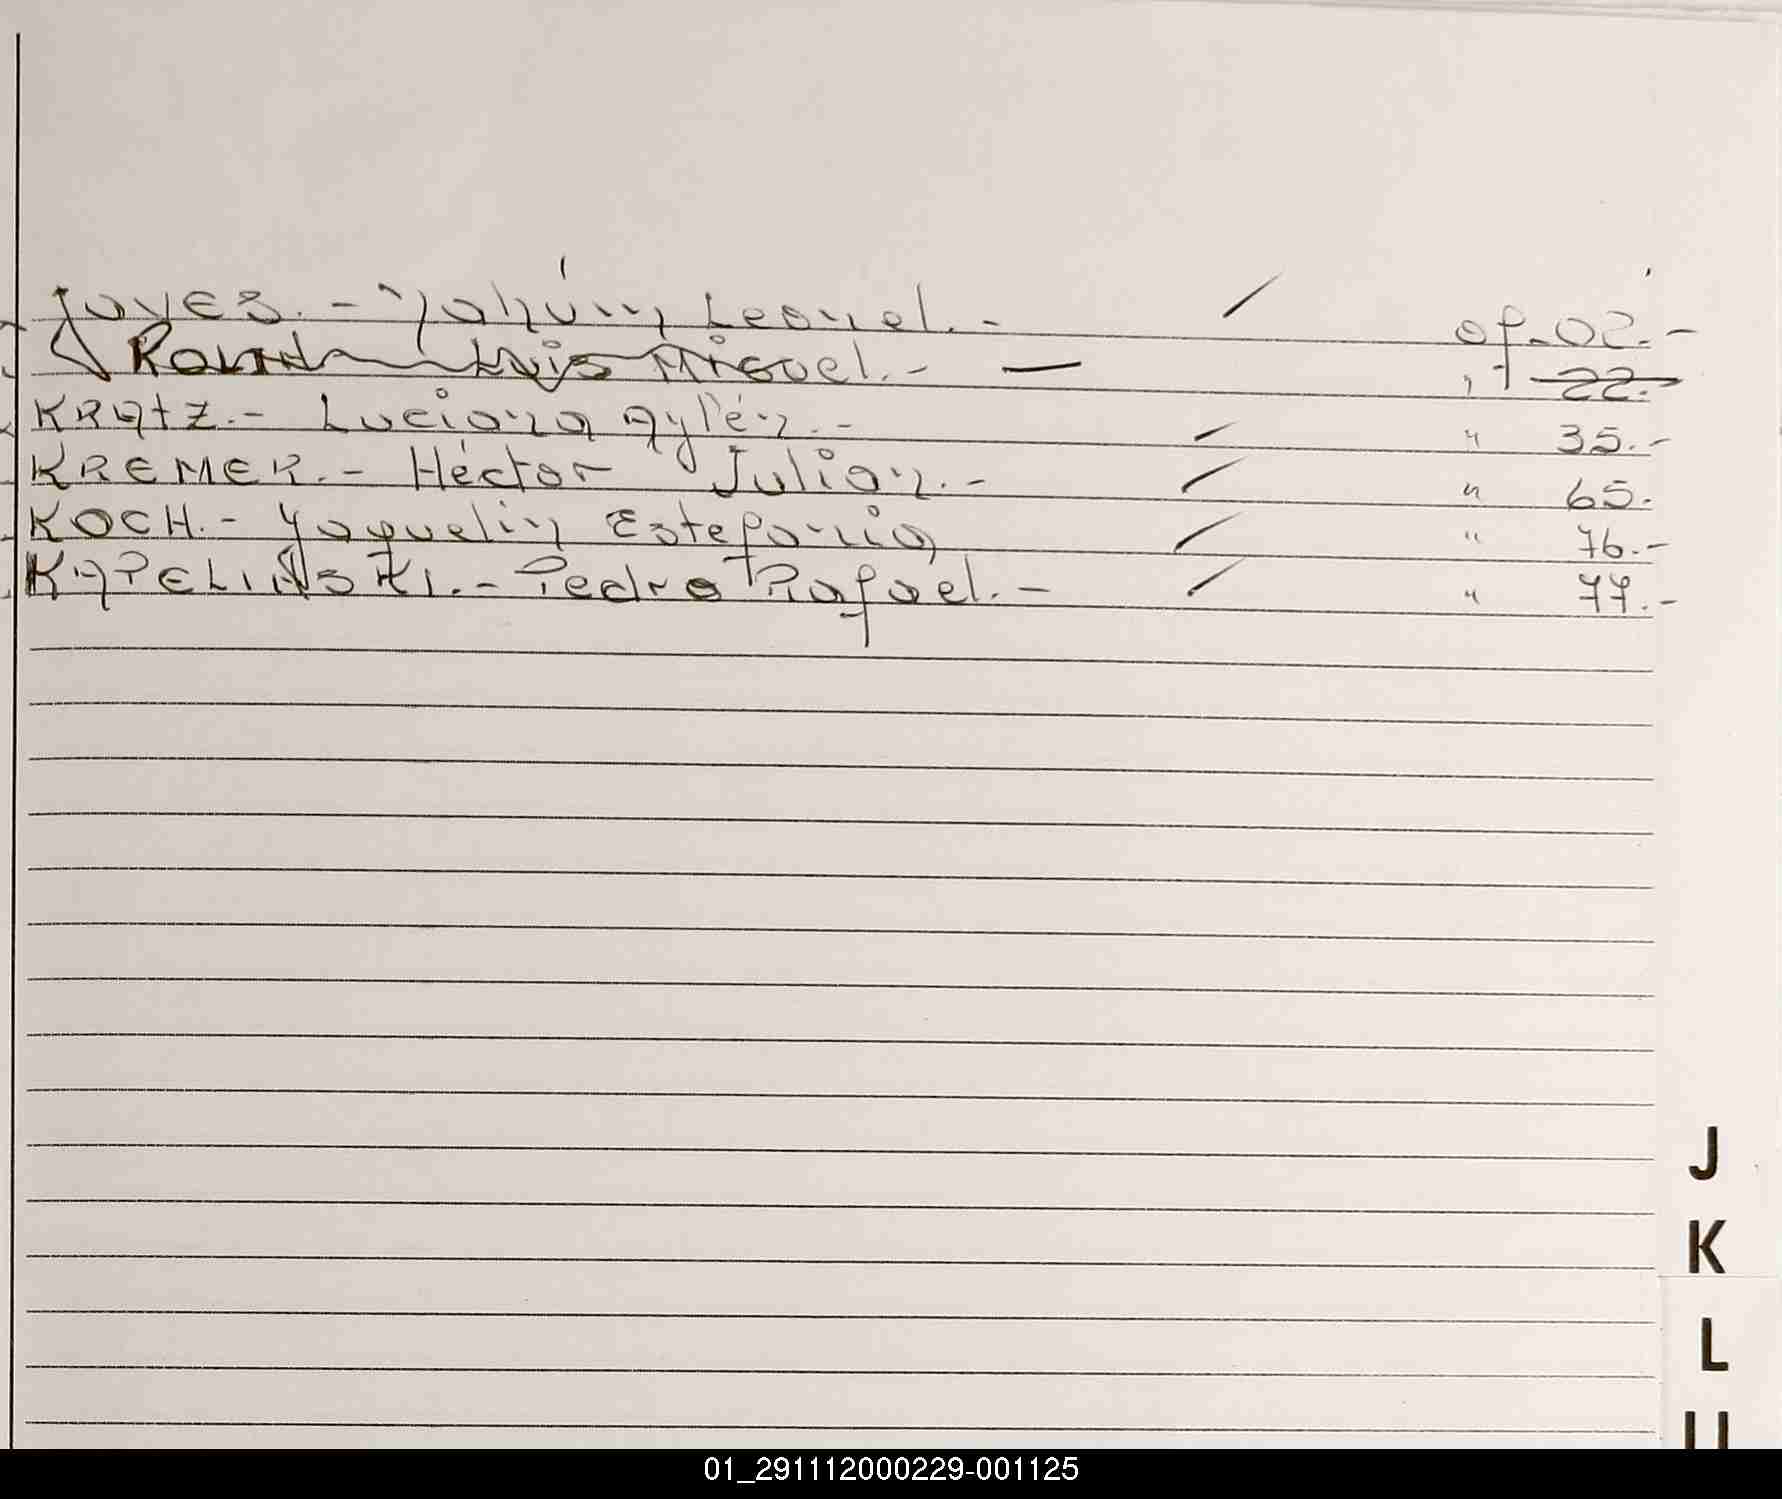 Joves.- Yohúin Leonel.- / of-02.-
Luis Miguel.- — " 22.-
KRATZ.- Luciana Aylén.- / " 35.-
KREMER.- Héctor Julian.- / " 65.
KOCH.- Yaquelin Estefania / " 76.-
KAPELINSKI.- Pedro Rafael.- / " 77.-
J
K
L
01_291112000229-001125